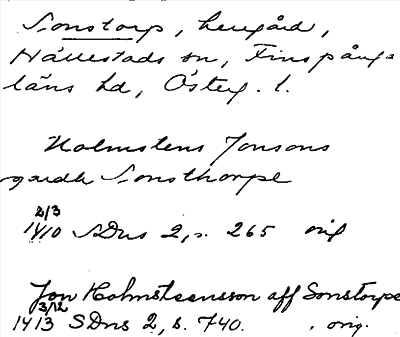 Sonstorp, herrgård,
Hällestads sn, Finspånga=
läns hd, Österg. l.
Holmstens Jonsons
gardh Sonsthorpe
2/3
1410 SDns 2, s. 265 orig
Jon Holmsteensson aff Sonstorpe
3/12
1413 SDns 2, s. 740. orig.